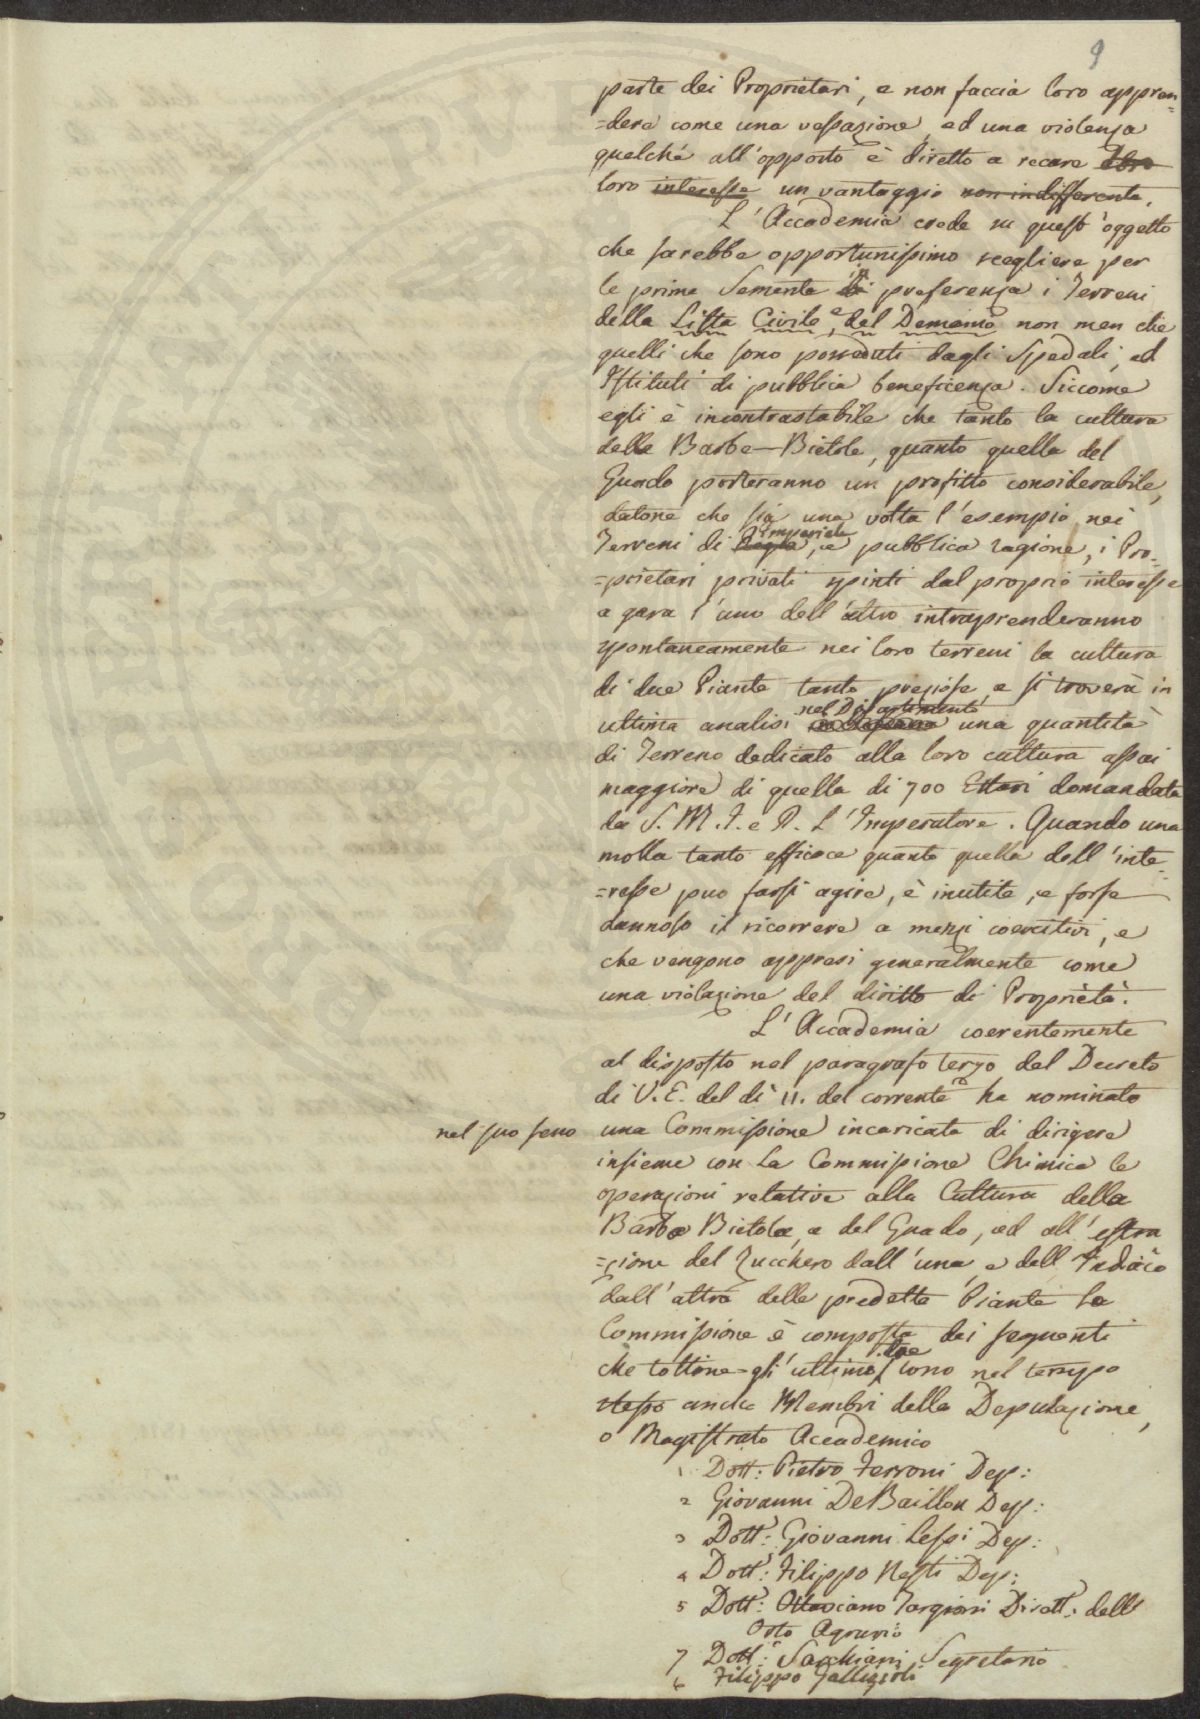 9
parte dei Proprietari, e non faccia loro appren
=dere come una vessazione, ed una violenza
quelche all'opposto è diretto a recare
loro interesse un vantaggio non indifferente.
L'Accademia crede su quest'oggetto
che sarebbe opportunissimo scegliere per
le prime Semente in preferenza i Terreni
della Lista Civile, e del Demanio non men che
quelli che sono posseduti dagli Spedali, ed
Istituti di pubblica beneficenza. Siccome
egli è incontrastabile che tanto la cultura
delle Barbe-Bietole, quanto quella del
Guado porteranno un profitto considerabile,
datone che sia una volta l'esempio nei
Terreni di Regia Imperiale, e pubblica ragione, i Pro-
=prietari privati spinti dal proprio interesse
a gara l'uno dell'altro intraprenderanno
spontaneamente nei loro terreni la cultura
di due Piante tanto preziose, e si troverà in
ultima analisi nel Dipartimento una quantità
di Terreno dedicato alla loro cultura assai
maggiore di quella di 700 Ettari domandata
da S. M. I. e R. L'Imperatore. Quando una
molla tanto efficace quanto quella dell'inte-
=resse puo farsi agire, è inutile, e forse
dannoso il ricorrere a mezzi coercitivi, e
che vengono appresi generalmente come
una violazione del diritto di Proprietà.
L'Accademia coerentemente
al disposto nel paragrafo terzo del Decreto
di V. E. del dì 11. del corrente ha nominato
nel suo seno una Commissione incaricata di dirigere
insieme con la Commissione Chimica le
operazioni relative alla Cultura della
Barba Bietola, e del Guado, ed all'estra
=zione del Zucchero dall'una, e dell'Indaco
dall'altra delle predette Piante la
Commissione è composta dei seguenti
che toltine gli ultimi due sono nel tempo
stesso anche Membri della Deputazione,
o Magistrato Accademico
1 Dott: Pietro Ferroni Dep:
2 Giovanni De Baillou Dep:
3 Dott: Giovanni Lessi Dep:
4 Dott: Filippo Nesti Dep:
5 Dott: Ottaviano Targioni Dirett: dell'
Orto Agrario
7 Dott: Sarchiani Segretario
6 Filippo Gallizioli